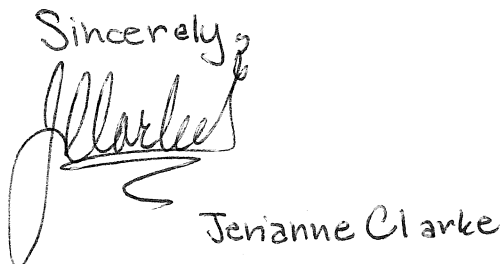 Sincerely,
JClarke
Jerianne Clarke